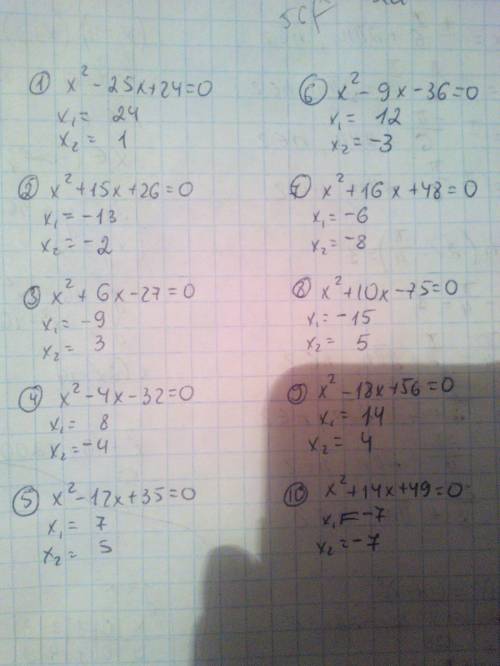 ① x² - 25x + 24 = 0
x₁ = 24
x₂ = 1
② x² + 15x + 26 = 0
x₁ = -13
x₂ = -2
③ x² + 6x - 27 = 0
x₁ = -9
x₂ = 3
④ x² - 4x - 32 = 0
x₁ = 8
x₂ = -4
⑤ x² - 12x + 35 = 0
x₁ = 7
x₂ = 5
⑥ x² - 9x - 36 = 0
x₁ = 12
x₂ = -3
⑦ x² + 16x + 48 = 0
x₁ = -6
x₂ = -8
⑧ x² + 10x - 75 = 0
x₁ = -15
x₂ = 5
⑨ x² - 18x + 56 = 0
x₁ = 14
x₂ = 4
⑩ x² + 14x + 49 = 0
x₁ = -7
x₂ = -7